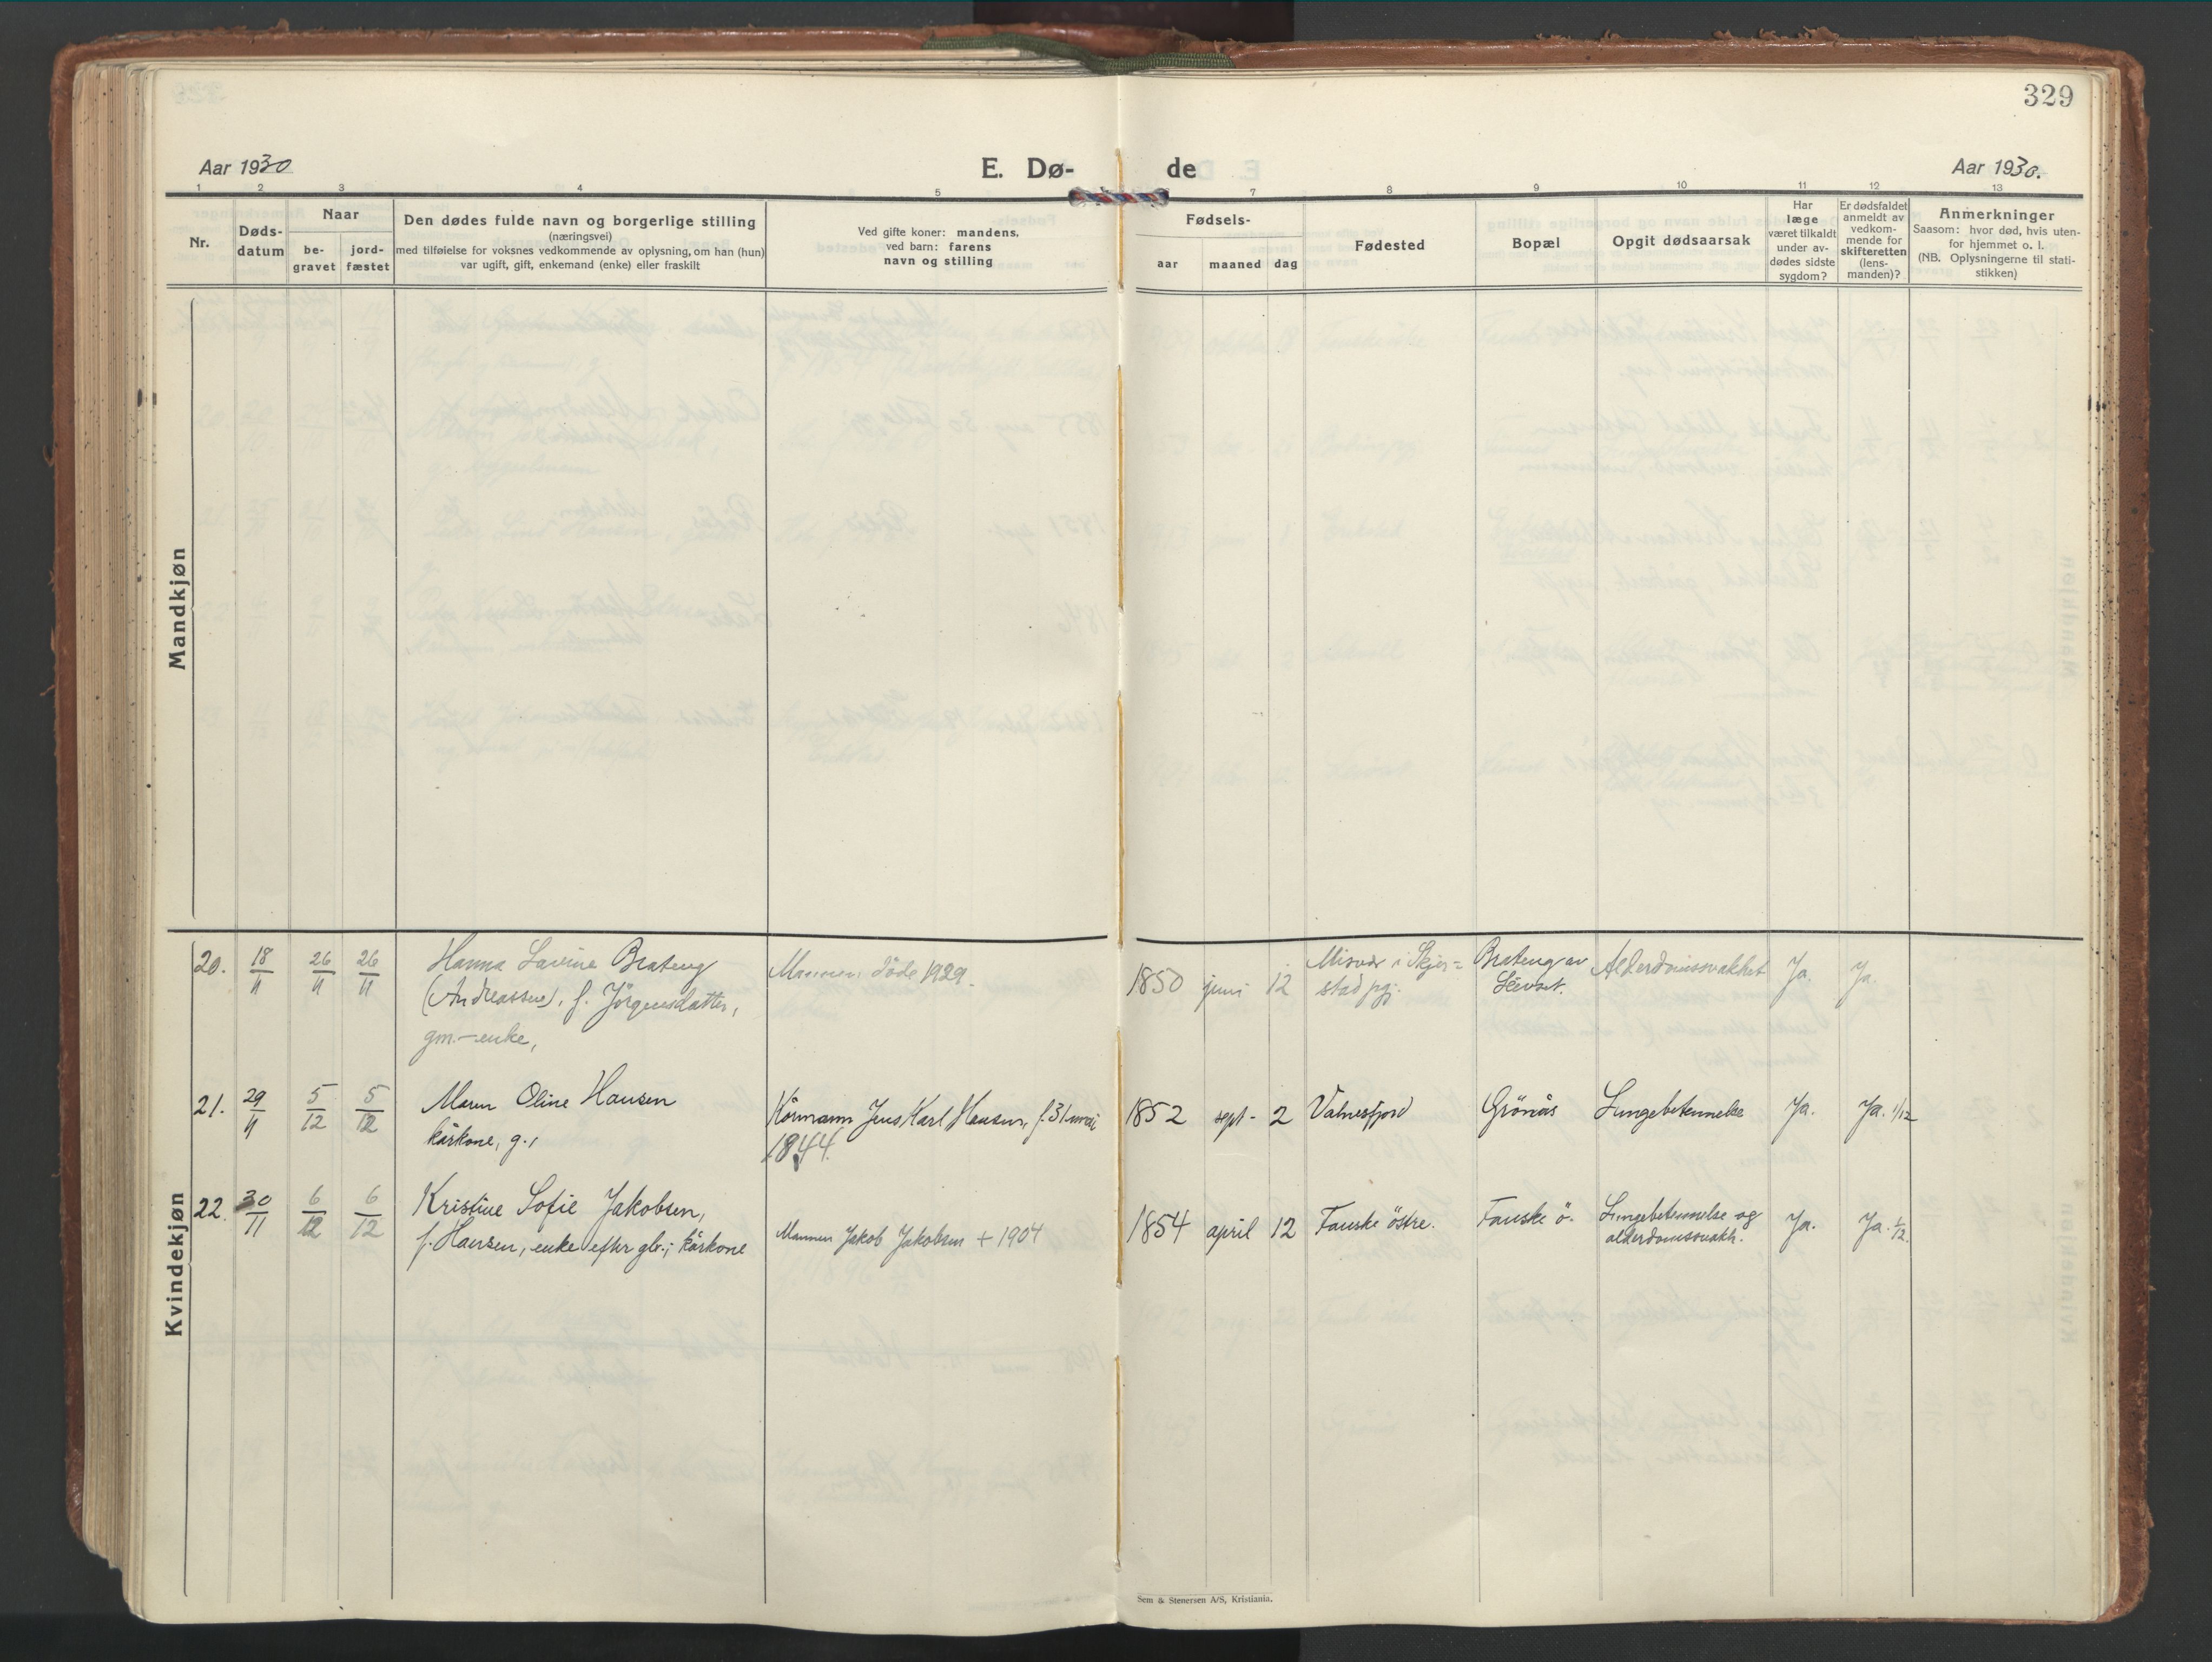 329
Aar 1930
E. Dø-
de
Aar 1930.
1 2 3 4 5 7 8 9 10 11 12 13
Nr.
Døds-
datum
Naar
be-
gravet
jord-
fæstet
Den dødes fulde navn og borgerlige stilling
(næringsvei)
med tilføielse for voksnes vedkommende av oplysning, om han (hun)
var ugift, gift, enkemand (enke) eller fraskilt
Ved gifte koner: mandens,
ved barn: farens
navn og stilling
Fødsels-
aar
maaned
dag
Fødested
Bopæl
Opgit dødsaarsak
Har
læge
været tilkaldt
under av-
dødes sidste
sygdom?
Er dødsfaldet
anmeldt av
vedkom-
mende for
skifteretten
(lens-
manden)?
Anmerkninger
Saasom: hvor død, hvis uten-
for hjemmet o. l.
(NB. Oplysningerne til stati-
stikken)
Mandkjøn
Kvindekjøn
20. 18/11 26/11 26/11
Hanna Lavine Brateng
(Andreassen), f. Jörgensdatter,
gm.-enke,
Mannen döde 1929.
1850 juni 12
Misvær i Skjer=
stad pgj.
Brateng av
Leivset.
Alderdomssvakhet
Ja.
Ja.
21. 29/11 5/12 5/12
Maren Oline Hansen
kårkone, g.,
Kårmann Jens Karl Hansen, f. 31 mai
1844.
1852 sept- 2
Valnesfjord
Grönås
Lungebetennelse
Ja.
Ja. 1/12
22. 30/11 6/12 6/12
Kristine Sofie Jakobsen,
f. Hansen, enke efter gbr.; kårkone
Mannen Jakob Jakobsen + 1904
1854 april 12
Fauske östre.
Fauske ö.
Lungebetennelse og
alderdomssvakh.
Ja.
Ja. 1/12.
Sem & Stenersen A/S, Kristiania.